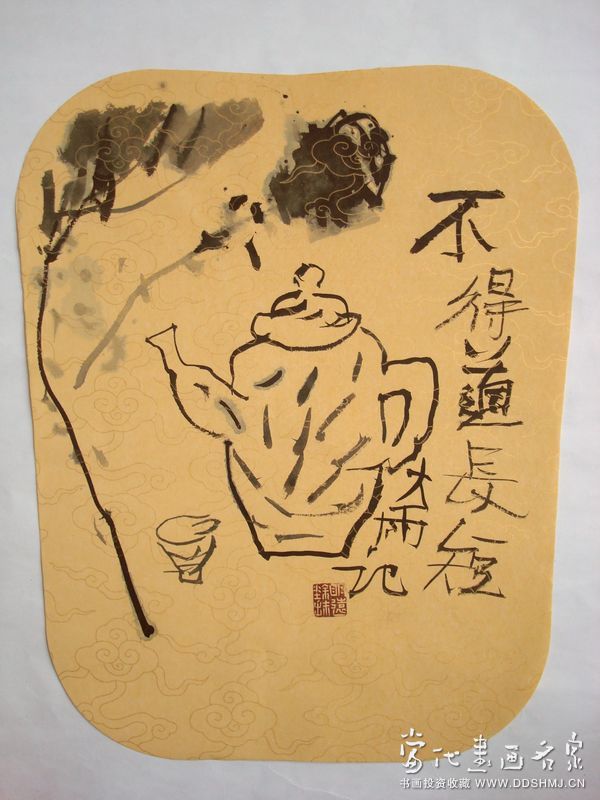 不得道長短
雨记
當代書画名家
书画投资收藏 WWW.DDSHMJ.CN